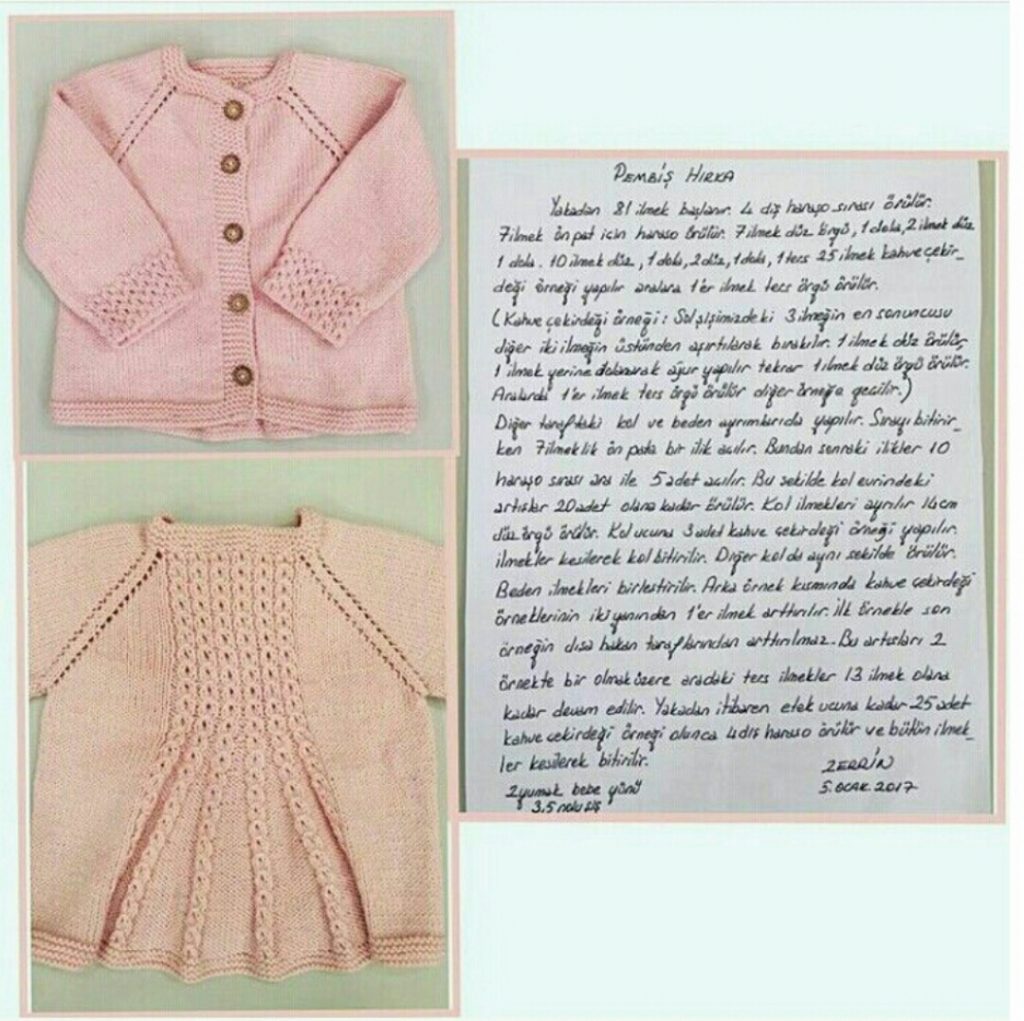 PEMBİŞ HIRKA
Yakadan 81 ilmek başlanır. 4 diş haraşo sırası örülür.
7 ilmek ön pat için haraşo örülür. 7 ilmek düz örgü, 1 dola, 2 ilmek düz
1 dola. 10 ilmek düz, 1 dola, 2 düz, 1 dola, 1 ters 25 ilmek kahve çekir_
değı örneği yapılır aralara 1'er ilmek ters örgü örülür.
(Kahve çekirdeği örneği: Sol şişimizdeki 3 ilmeğin en sonuncusu
diğer iki ilmeğin üstünden aşırtılarak bırakılır. 1 ilmek düz örülür,
1 ilmek yerine dolanarak ajur yapılır tekrar 1 ilmek düz örgü örülür.
Aralarda 1'er ilmek ters örgü örülür diğer örneğe geçilir.)
Diğer taraftaki kol ve beden ayrımlarıda yapılır. Sırayı bitirir_
ken 7 ilmeklik ön pata bir ilik açılır. Bundan sonraki ilikler 10
haraşo sırası ara ile 5 adet açılır. Bu şekilde kol evrindeki
artışlar 20 adet olana kadar örülür. Kol ilmekleri ayrılır 14 cm
düz örgü örülür. Kol ucuna 3 adet kahve çekirdeği örneği yapılır.
ilmekler kesilerek kol bitirilir. Diğer kol da aynı şekilde örülür.
Beden ilmekleri birleştirilir. Arka örnek kısmında kahve çekirdeği
örneklerinin iki yanından 1'er ilmek arttırılır. İlk örnekle son
örneğin dışa bakan taraflarından arttırılmaz. Bu artışları 2
örnekte bir olmak üzere aradaki ters ilmekler 13 ilmek olana
kadar devam edilir. Yakadan itibaren etek ucuna kadar 25 adet
kahve çekirdeği örneği olunca 4 diş haraşo örülür ve bütün ilmek_
ler kesilerek bitirilir.
ZERRİN
2 yumak bebe yünü
5. OCAK. 2017
3,5 nolu şiş